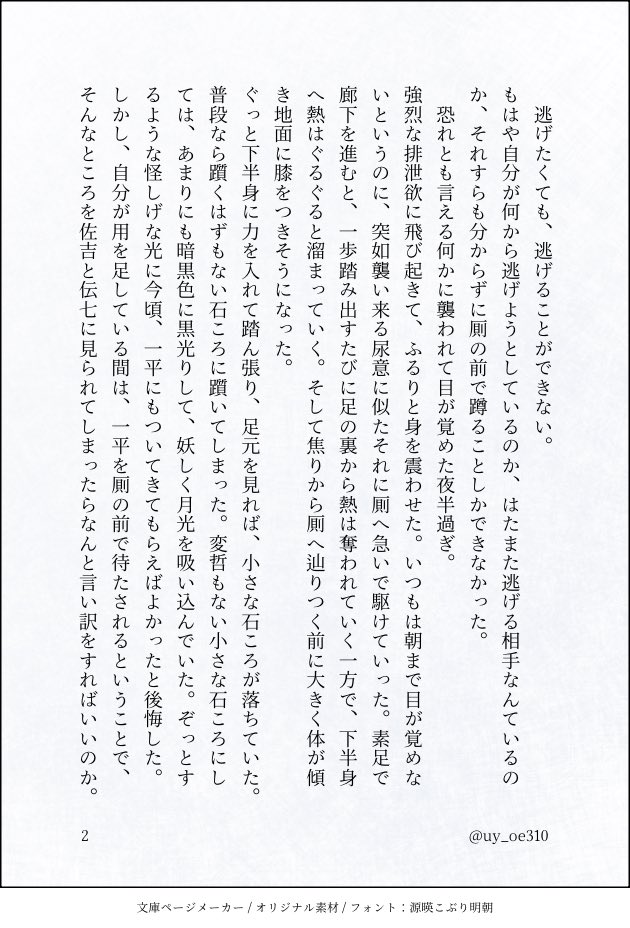 逃げたくても、逃げることができない。
もはや自分が何から逃げようとしているのか、はたまた逃げる相手なんているの
か、それすらも分からずに厠の前で蹲ることしかできなかった。
恐れとも言える何かに襲われて目が覚めた夜半過ぎ。
強烈な排泄欲に飛び起きて、ふるりと身を震わせた。いつもは朝まで目が覚めな
いというのに、突如襲い来る尿意に似たそれに厠へ急いで駆けていった。素足で
廊下を進むと、一歩踏み出すたびに足の裏から熱は奪われていく一方で、下半身
へ熱はぐるぐると溜まっていく。そして焦りから厠へ辿りつく前に大きく体が傾
き地面に膝をつきそうになった。
ぐっと下半身に力を入れて踏ん張り、足元を見れば、小さな石ころが落ちていた。
普段なら躓くはずもない石ころに躓いてしまった。変哲もない小さな石ころにし
ては、あまりにも暗黒色に黒光りして、妖しく月光を吸い込んでいた。ぞっとす
るような怪しげな光に今頃、一平にもついてきてもらえばよかったと後悔した。
しかし、自分が用を足している間は、一平を厠の前で待たされるということで、
そんなところを佐吉と伝七に見られてしまったらなんと言い訳をすればいいのか。
2
@uy_oe310
文庫ページメーカー / オリジナル素材 / フォント：源暎こぶり明朝